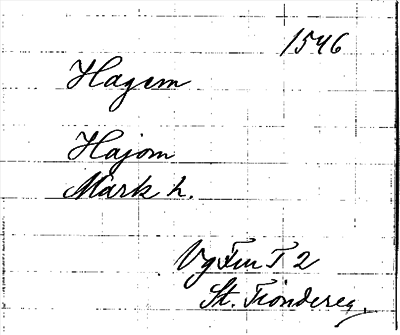 1546
Hagem
Hajom
Mark h.
Vg Fur T 2
St. Tröndereg.